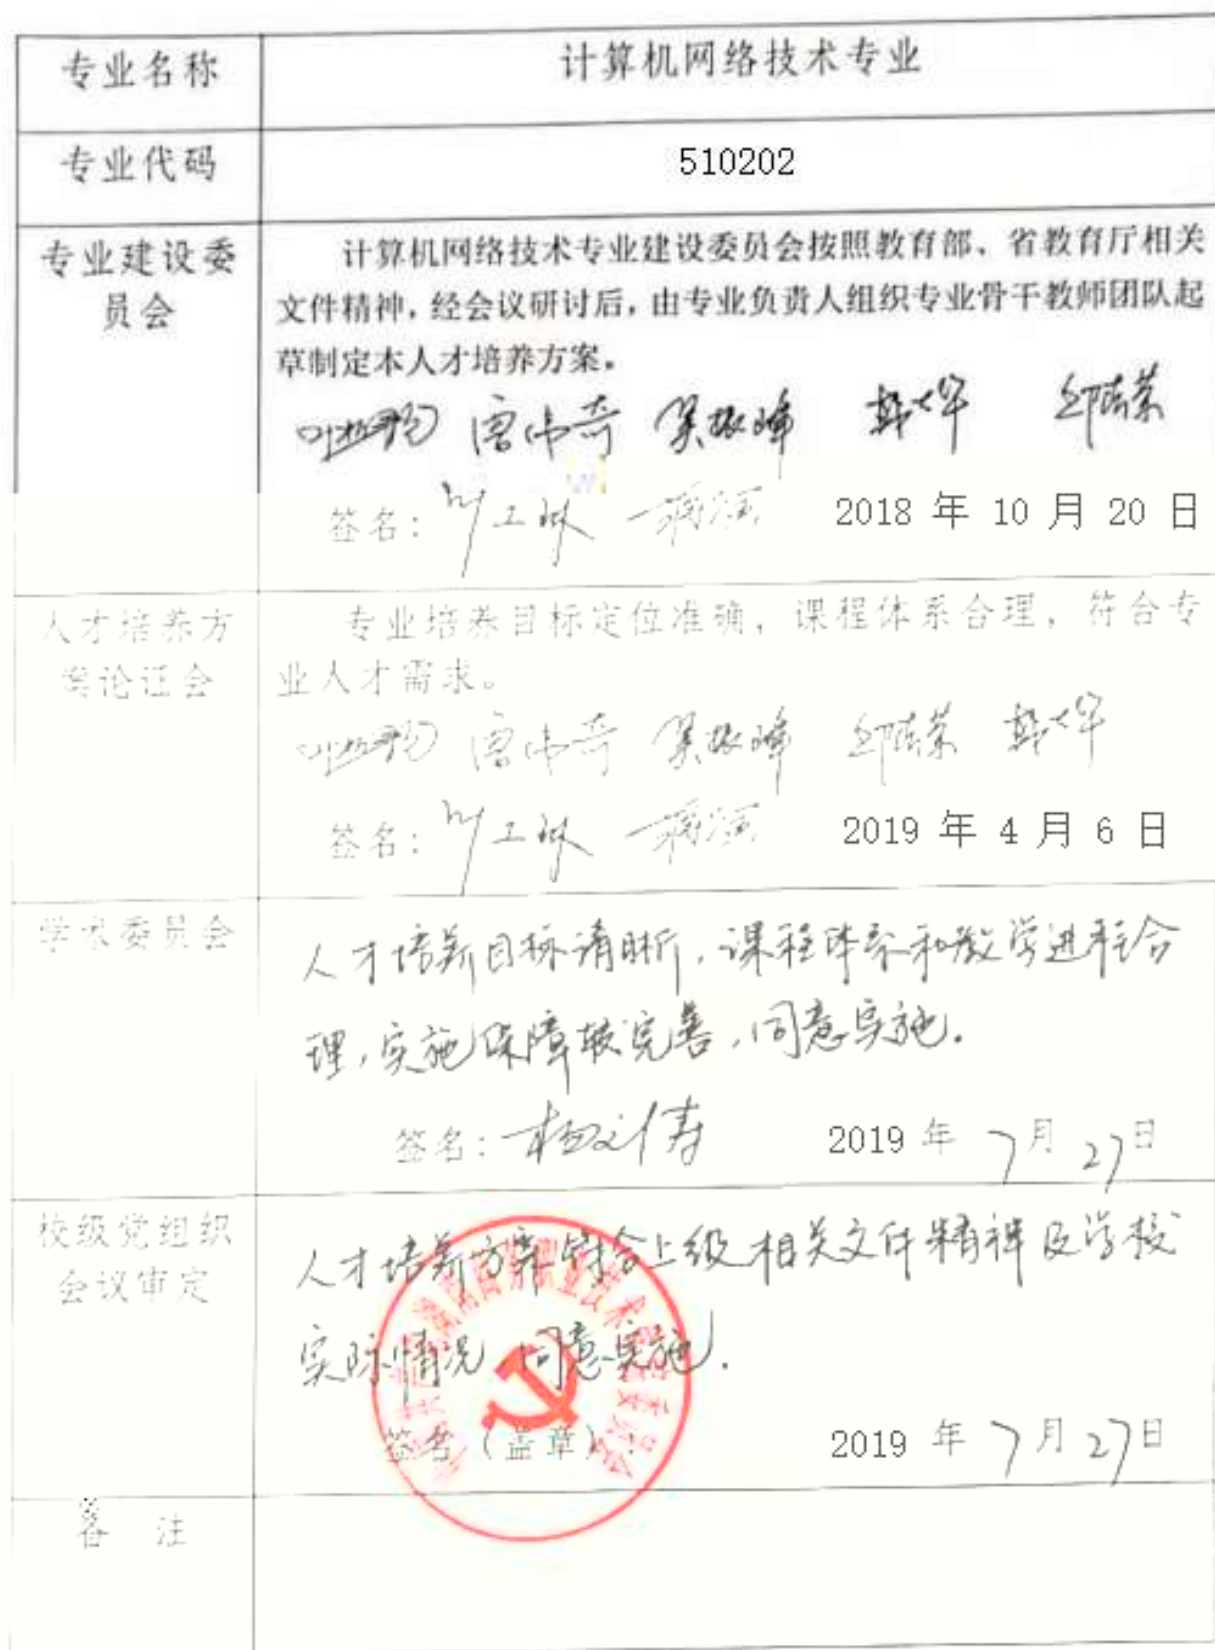 专业名称
计算机网络技术专业
专业代码
510202
专业建设委
员会
计算机网络技术专业建设委员会按照教育部、省教育厅相关
文件精神，经会议研讨后，由专业负责人组织专业骨干教师团队起
草制定本人才培养方案。
唐伟奇 吴振峰 韩大军 邱志荣
签名： 2018 年 10 月 20 日
人才培养方
案论证会
专业培养目标定位准确，课程体系合理，符合专
业人才需求。
唐伟奇 吴振峰 邱志荣 韩大军
签名： 2019 年 4 月 6 日
学术委员会
人才培养目标清晰，课程体系和教学进程合
理，实施保障较完善，同意实施.
签名： 2019 年 7 月 27 日
校级党组织
会议审定
人才培养方案符合上级相关文件精神及学校
实际情况，同意实施.
签名（盖章）： 2019 年 7 月 27 日
备 注